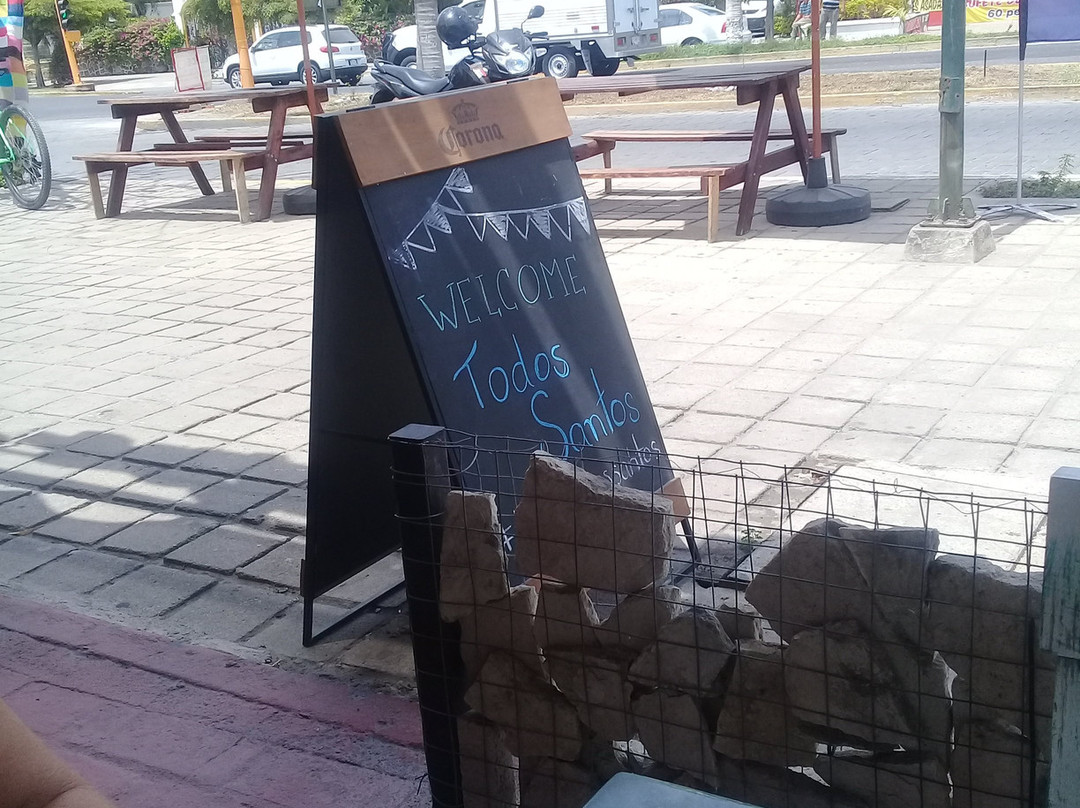 Corona
WELCOME
Todos
Santos
60 pe